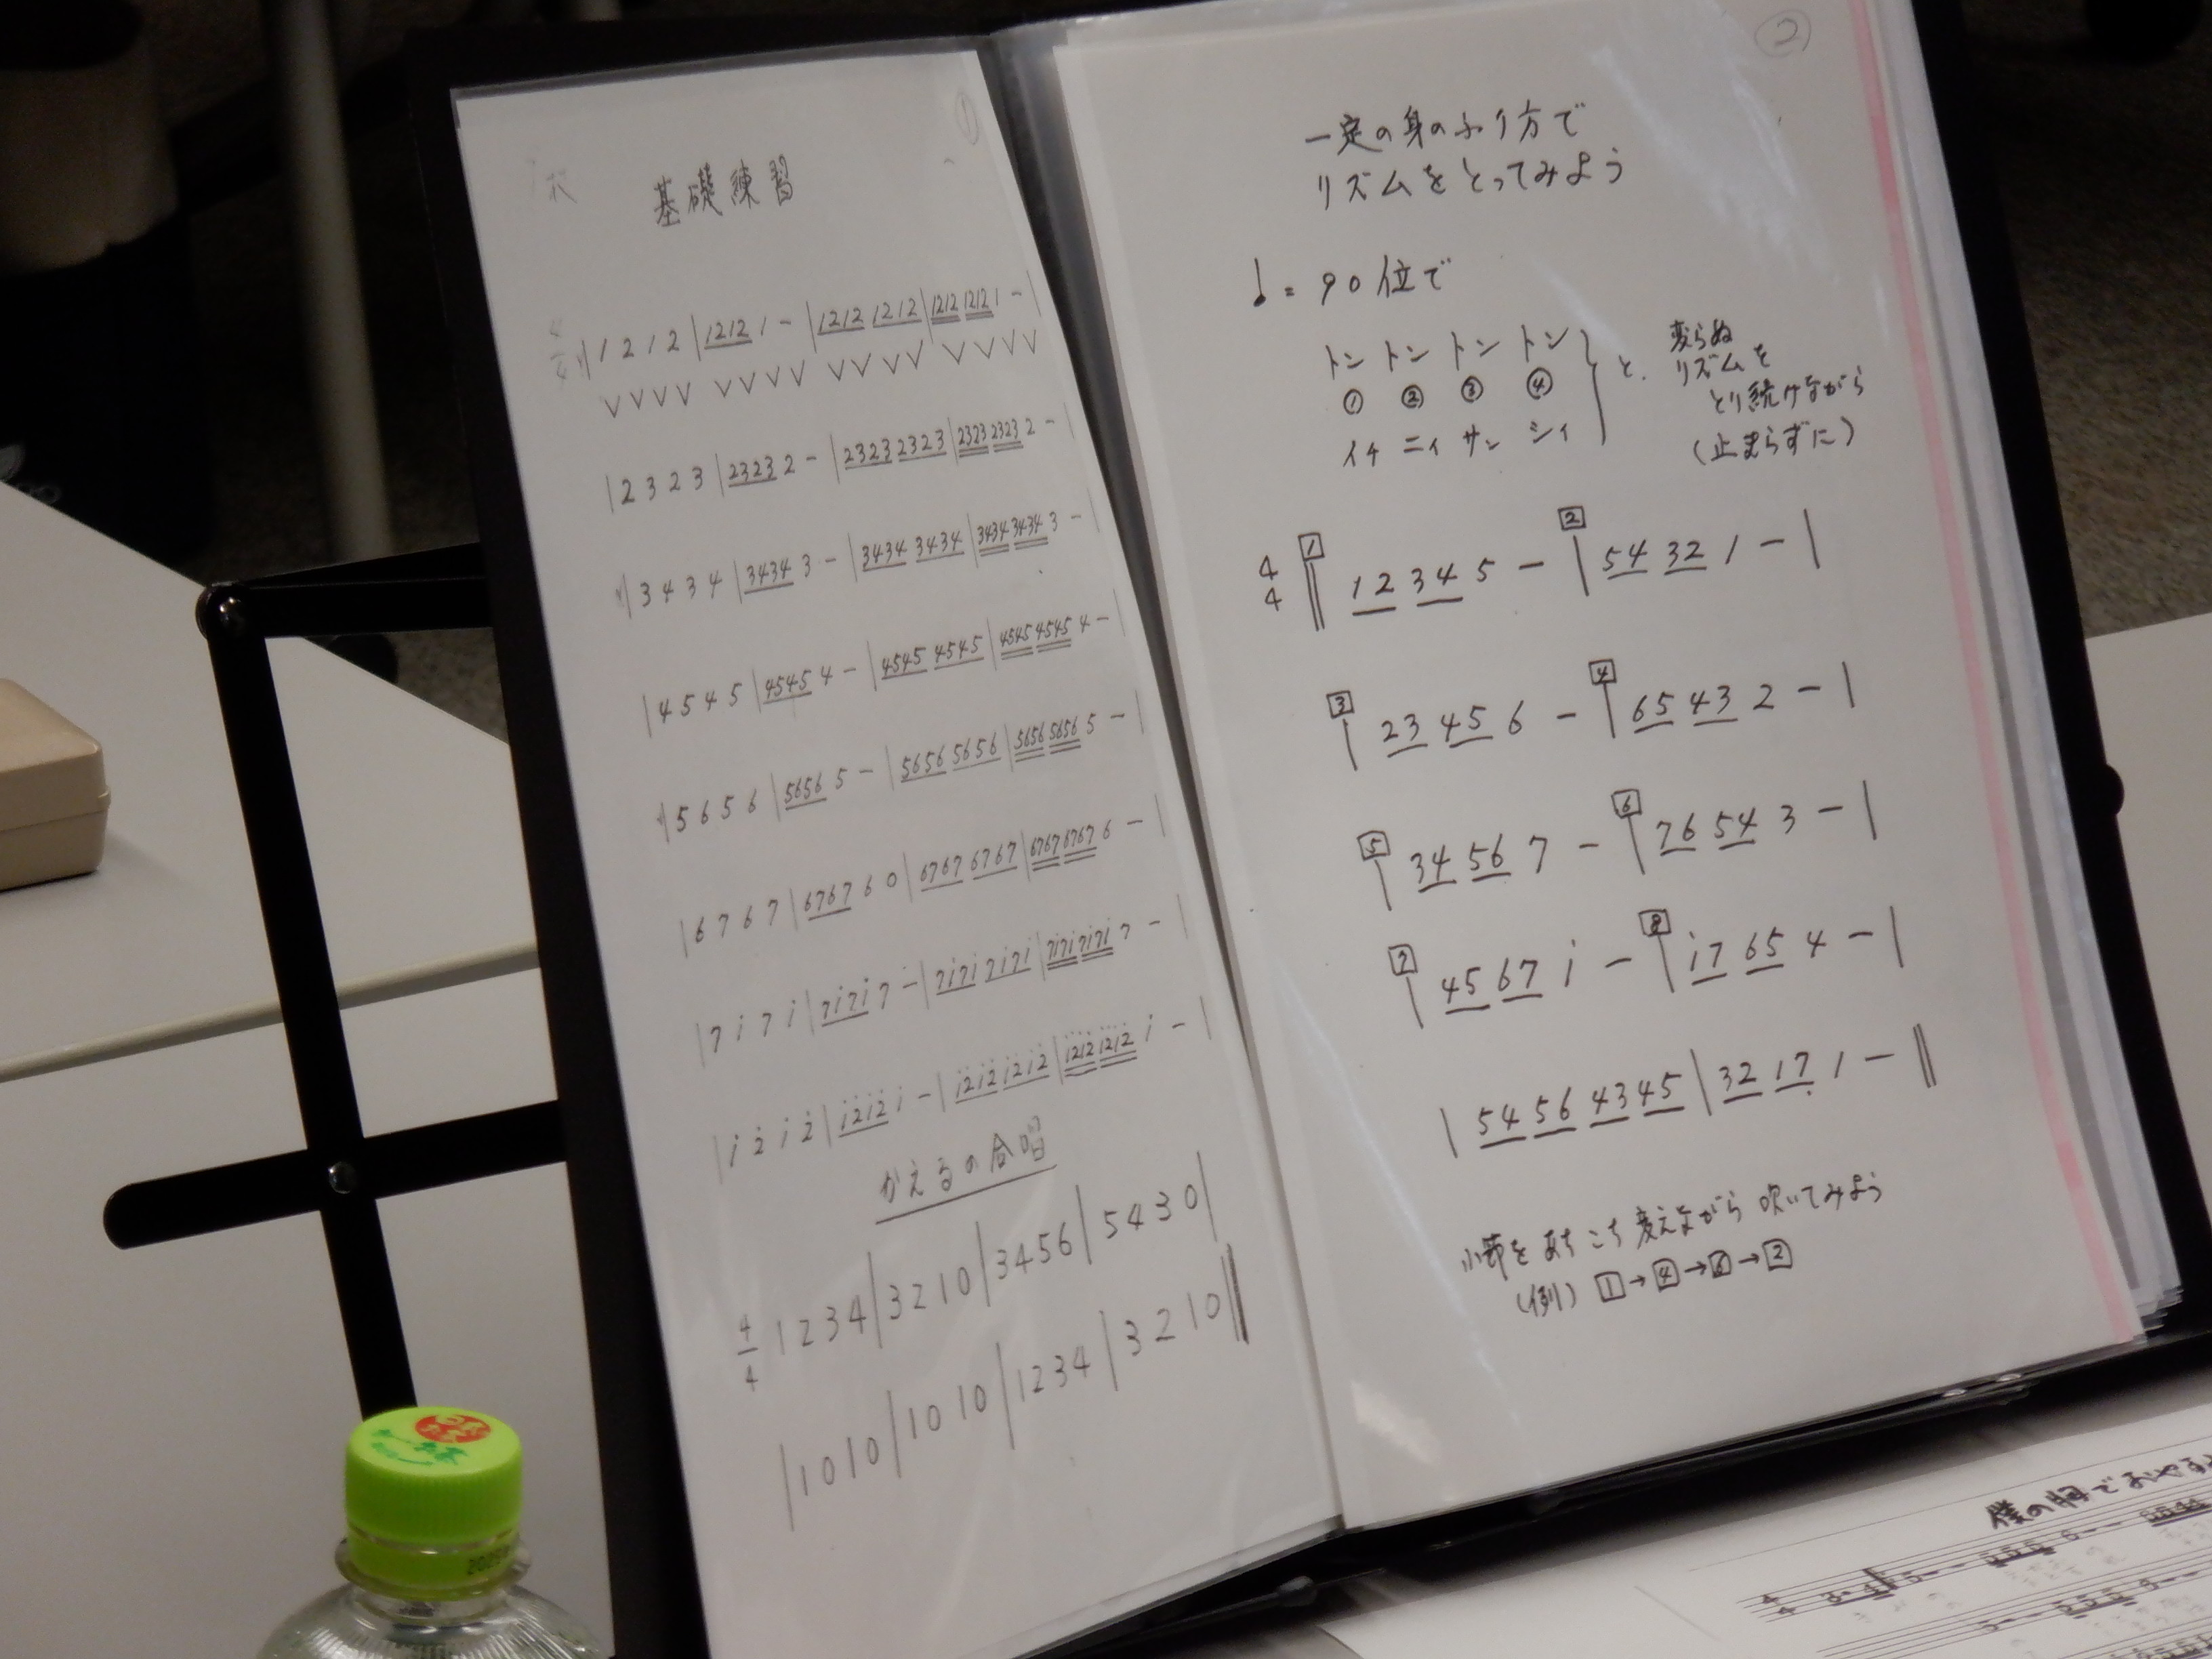 ①
基礎練習
| 1 2 1 2 | 1212 1 − | 1212 1212 | 1212 1212 1 − |
V V V V V V V V V V V V V V V V
| 2 3 2 3 | 2323 2 − | 2323 2323 | 2323 2323 2 − |
| 3 4 3 4 | 3434 3 − | 3434 3434 | 3434 3434 3 − |
| 4 5 4 5 | 4545 4 − | 4545 4545 | 4545 4545 4 − |
| 5 6 5 6 | 5656 5 − | 5656 5656 | 5656 5656 5 − |
| 6 7 6 7 | 6767 6 0 | 6767 6767 | 6767 6767 6 − |
| 7 i 7 i | 7i7i 7 − | 7i7i 7i7i | 7i7i 7i7i 7 − |
| i 2̇ i 2̇ | i2̇i2̇ i − | i2̇i2̇ i2̇i2̇ | i2̇i2̇ i2̇i2̇ i − |
かえるの合唱
4/4 1 2 3 4 | 3 2 1 0 | 3 4 5 6 | 5 4 3 0 |
| 1 0 1 0 | 1 0 1 0 | 1 2 3 4 | 3 2 1 0 ||
②
一定の身のふり方で
リズムをとってみよう
♩= 90位で
トン トン トン トン
① ② ③ ④
イチ ニィ サン シィ
と、変らぬ
リズムを
とり続けながら
(止まらずに)
4/4 1 || 12 34 5 − 2 | 54 32 1 − |
3 | 23 45 6 − 4 | 65 43 2 − |
5 | 34 56 7 − 6 | 76 54 3 − |
7 | 45 67 i − 8 | i7 65 4 − |
| 54 56 43 45 | 32 17̣ 1 − ||
小節をあちこち変えながら吹いてみよう
(例) 1→4→6→2
僕の胸でおやすみ
4/4